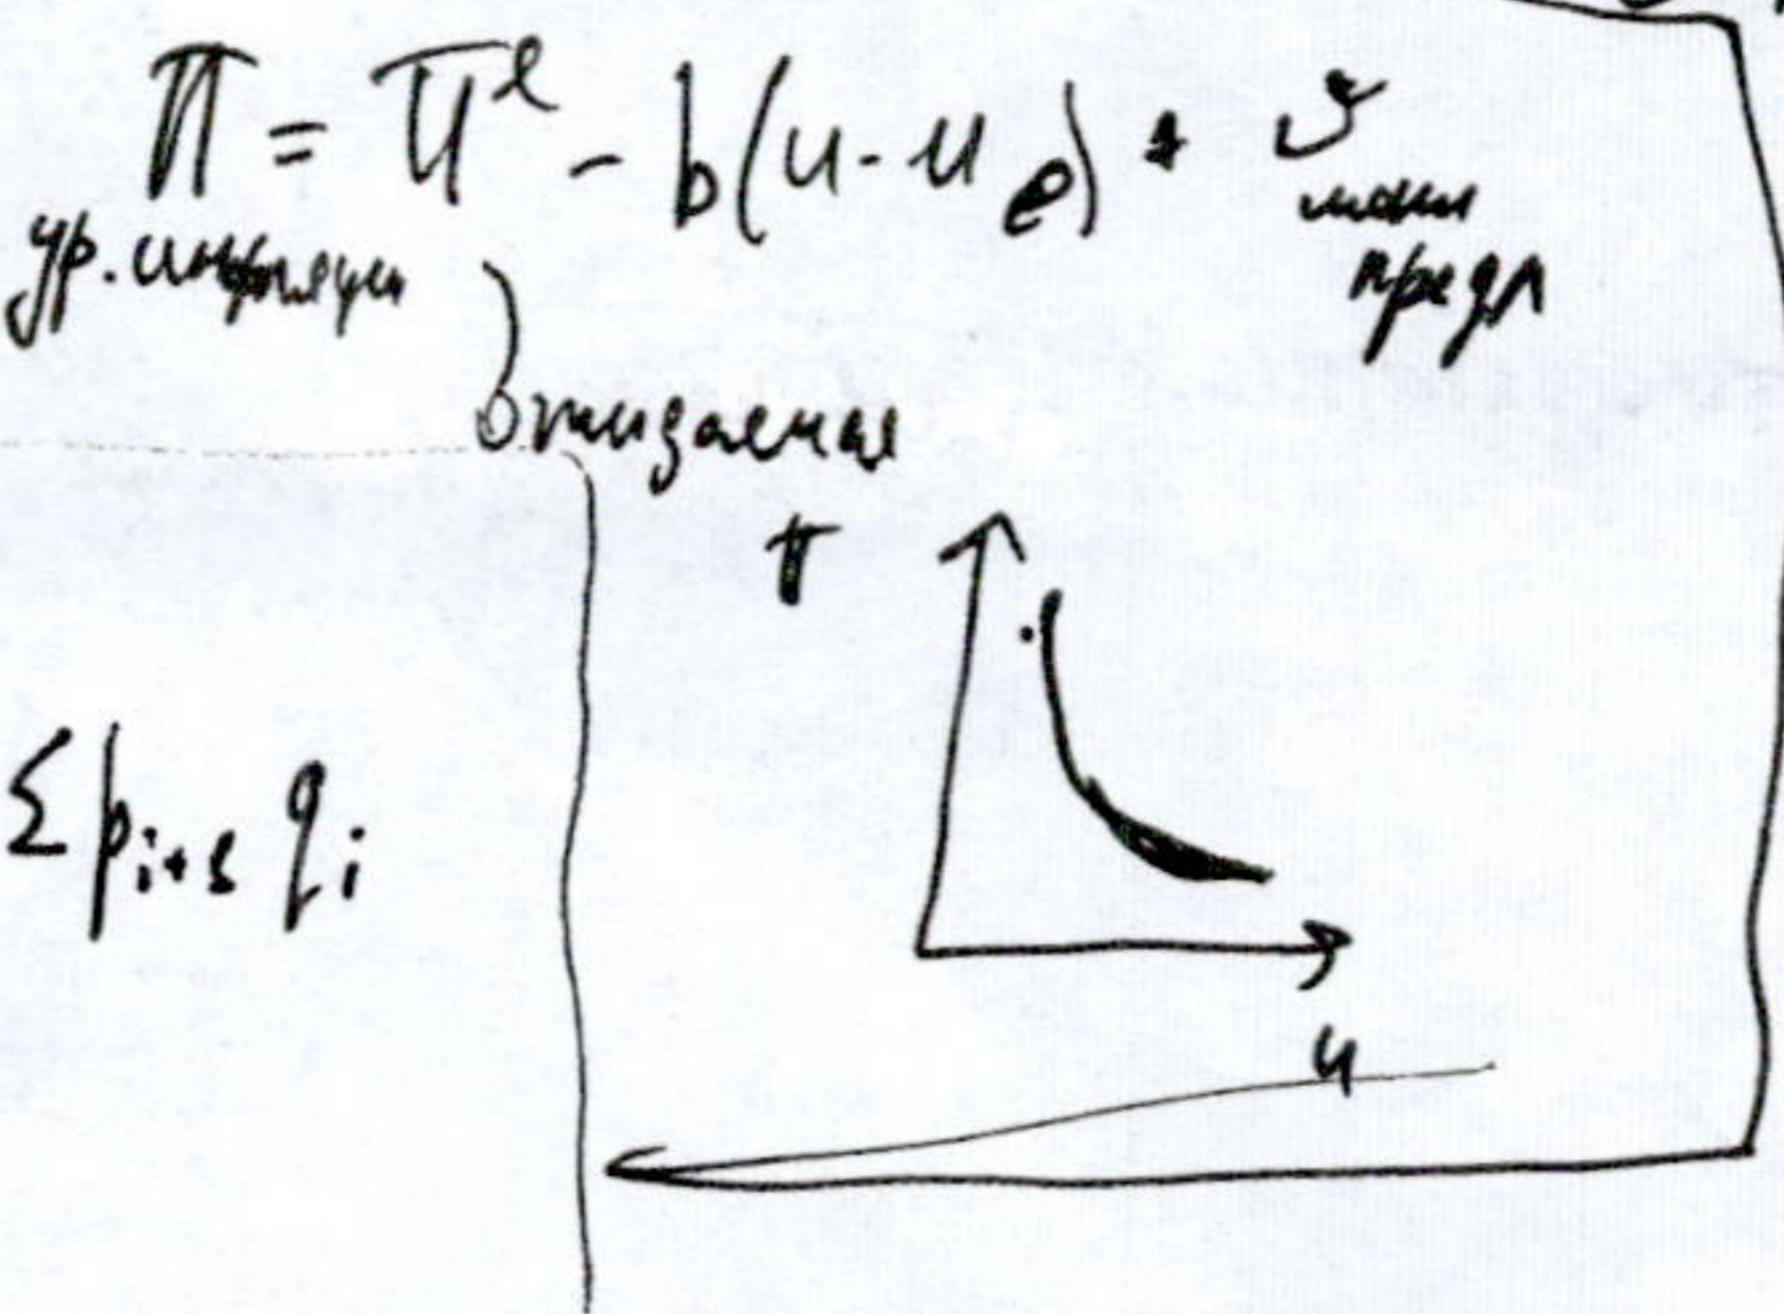 π = π^e - b(u - u_e) + υ
ур. инфляции
шоки
предл
ожидаемая
π
Σ p_{i+1} q_i
u